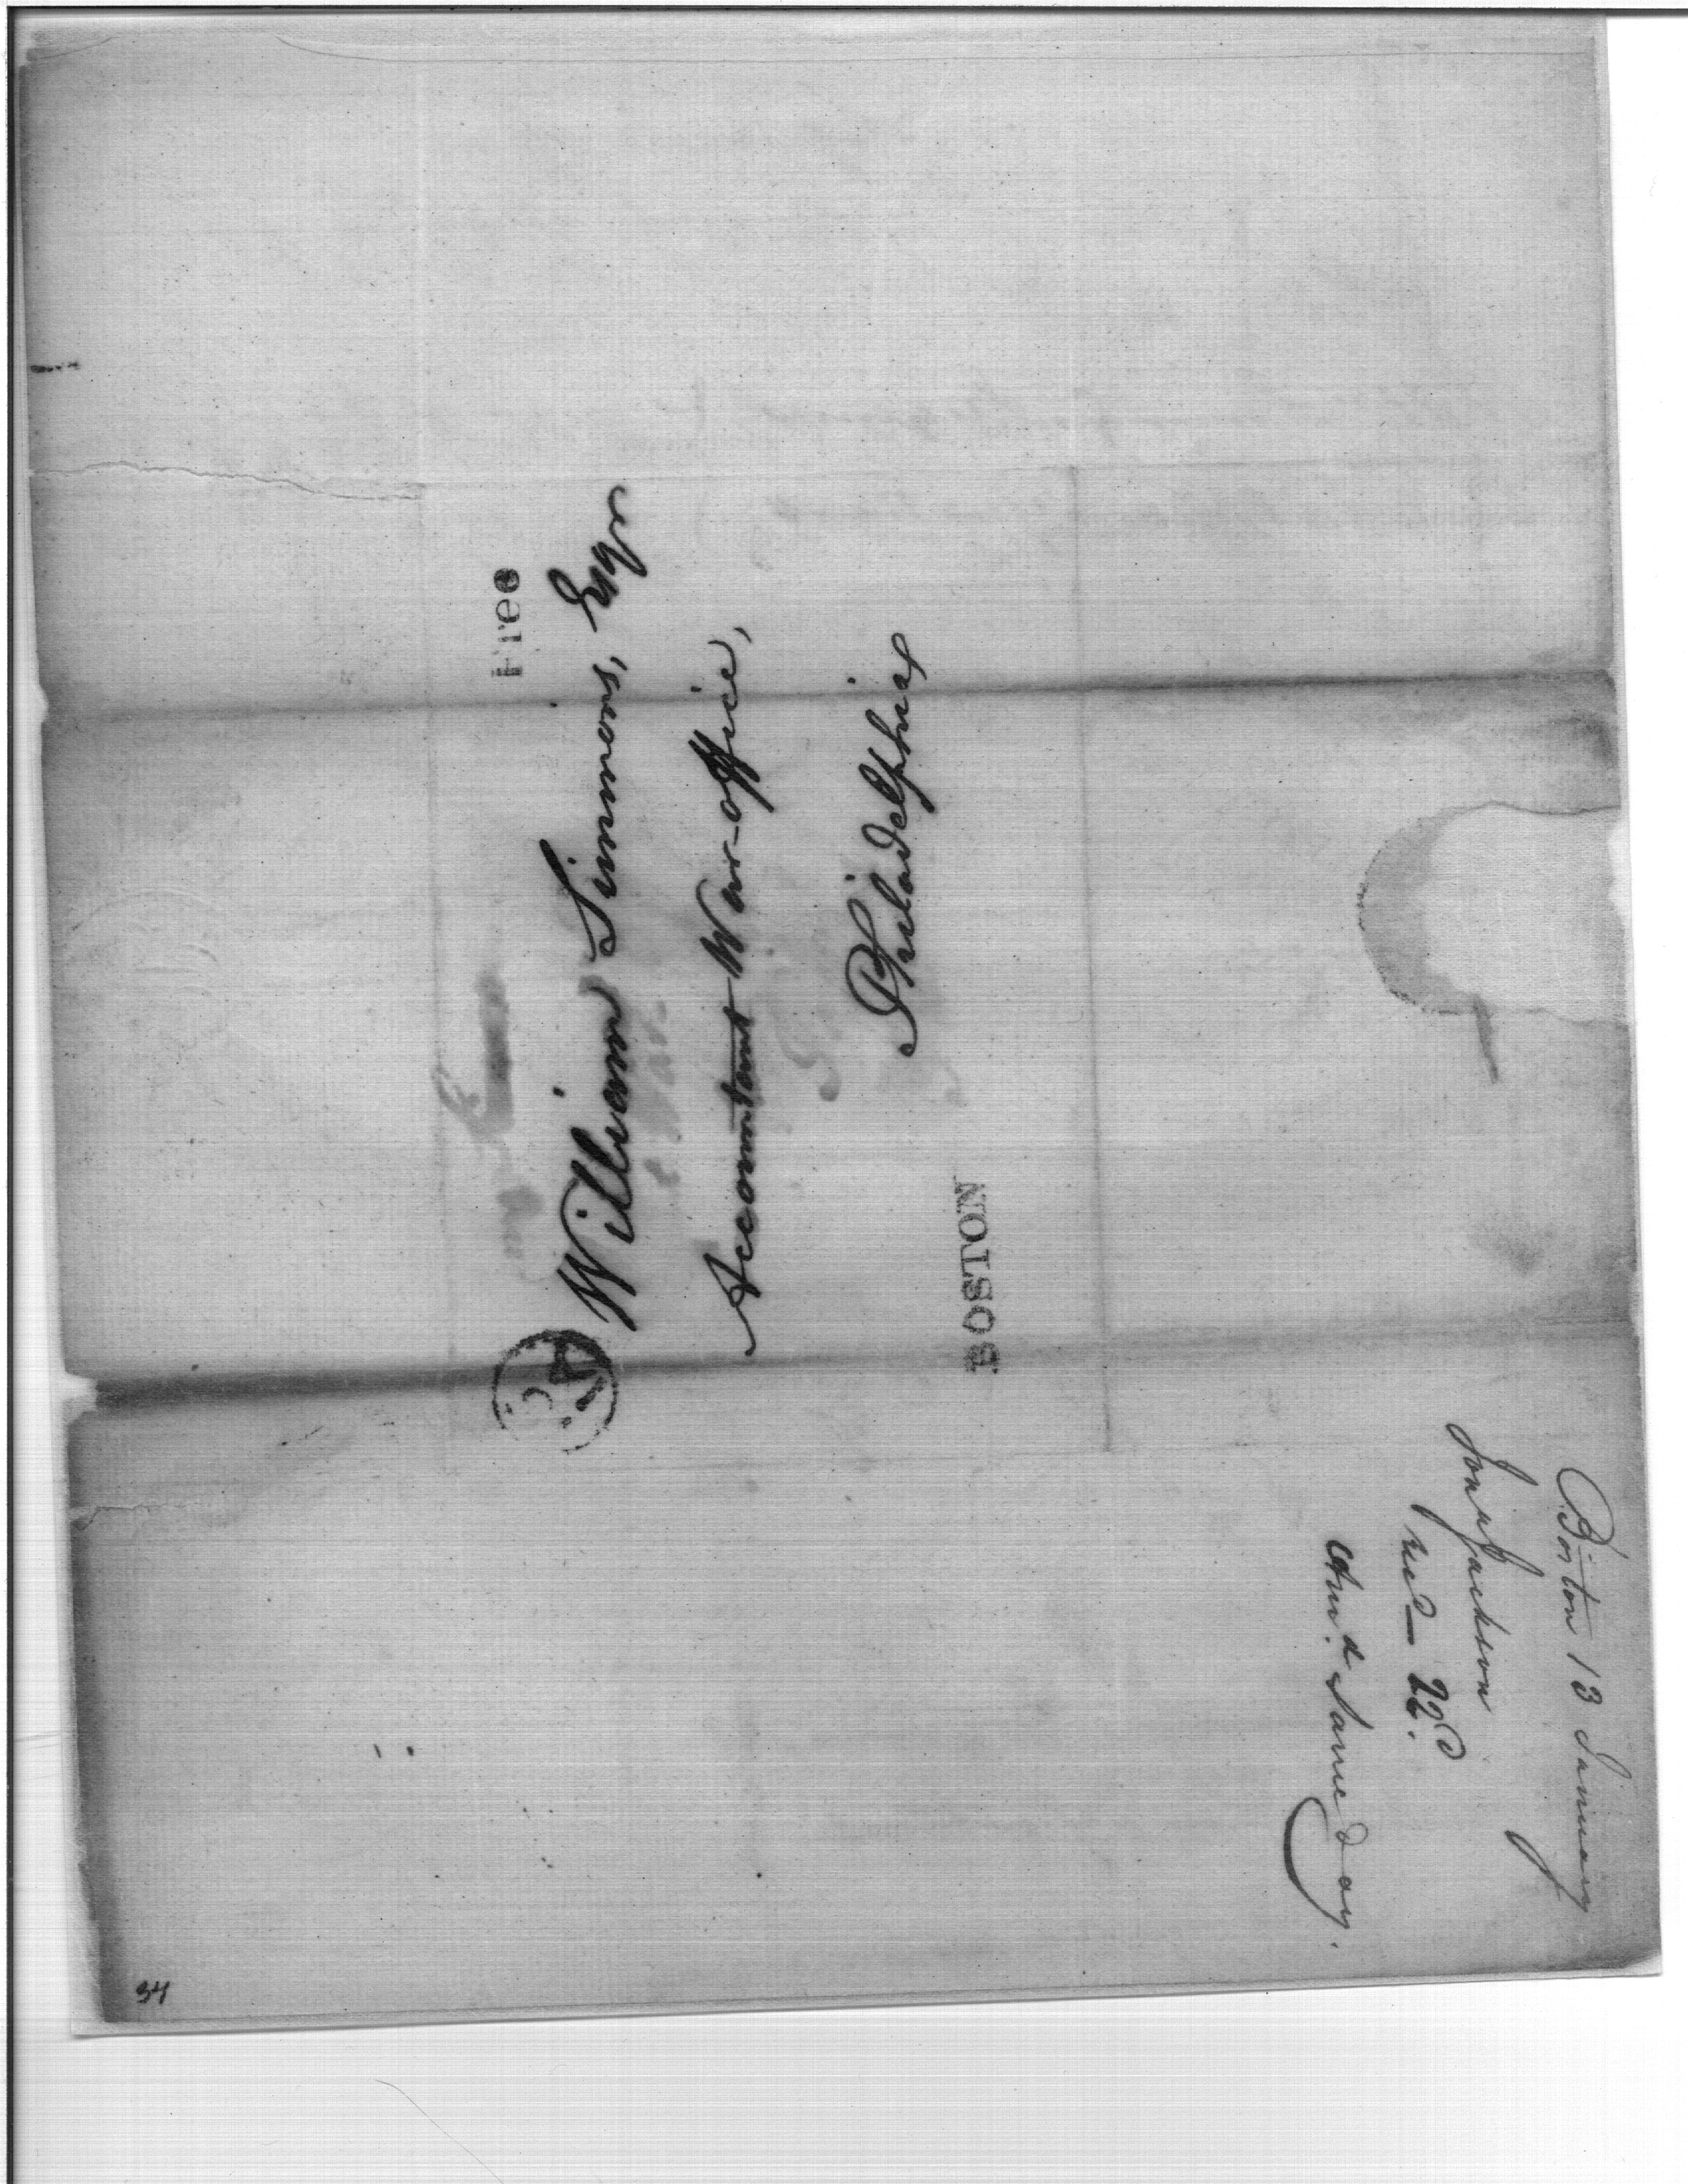 Free
William Simmons, Esqr
Accountant War-office,
Philadelphia
BOSTON
Boston 13 January
Jon Jackson
recd — 22d.
Answd same day.
34